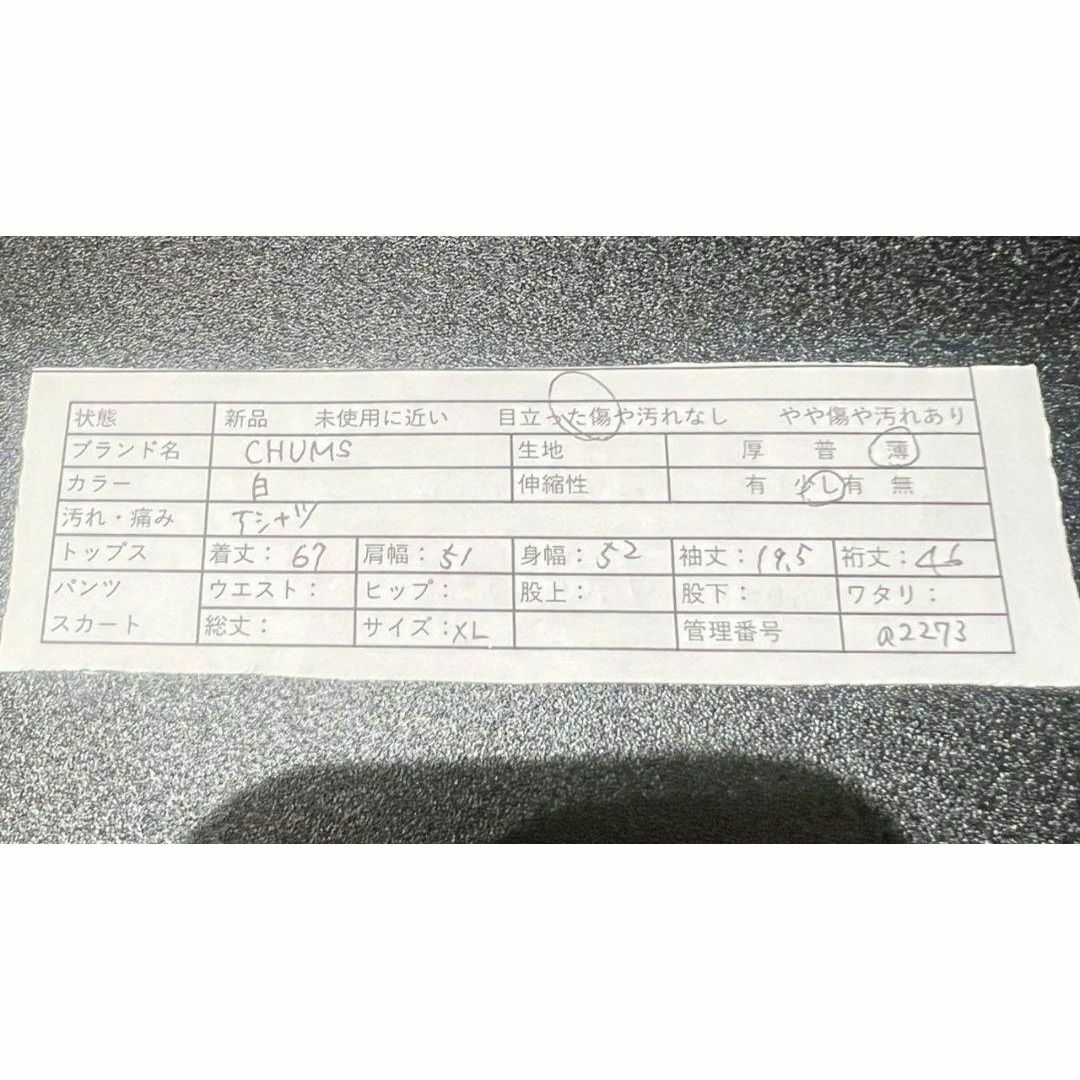 状態 新品 未使用に近い 目立った傷や汚れなし やや傷や汚れあり
ブランド名 CHUMS 生地 厚 普 薄
カラー 白 伸縮性 有 少し有 無
汚れ・痛み Tシャツ
トップス 着丈：67 肩幅：51 身幅：52 袖丈：19.5 裄丈：46
パンツ ウエスト： ヒップ： 股上： 股下： ワタリ：
スカート 総丈： サイズ：XL 管理番号 a2273